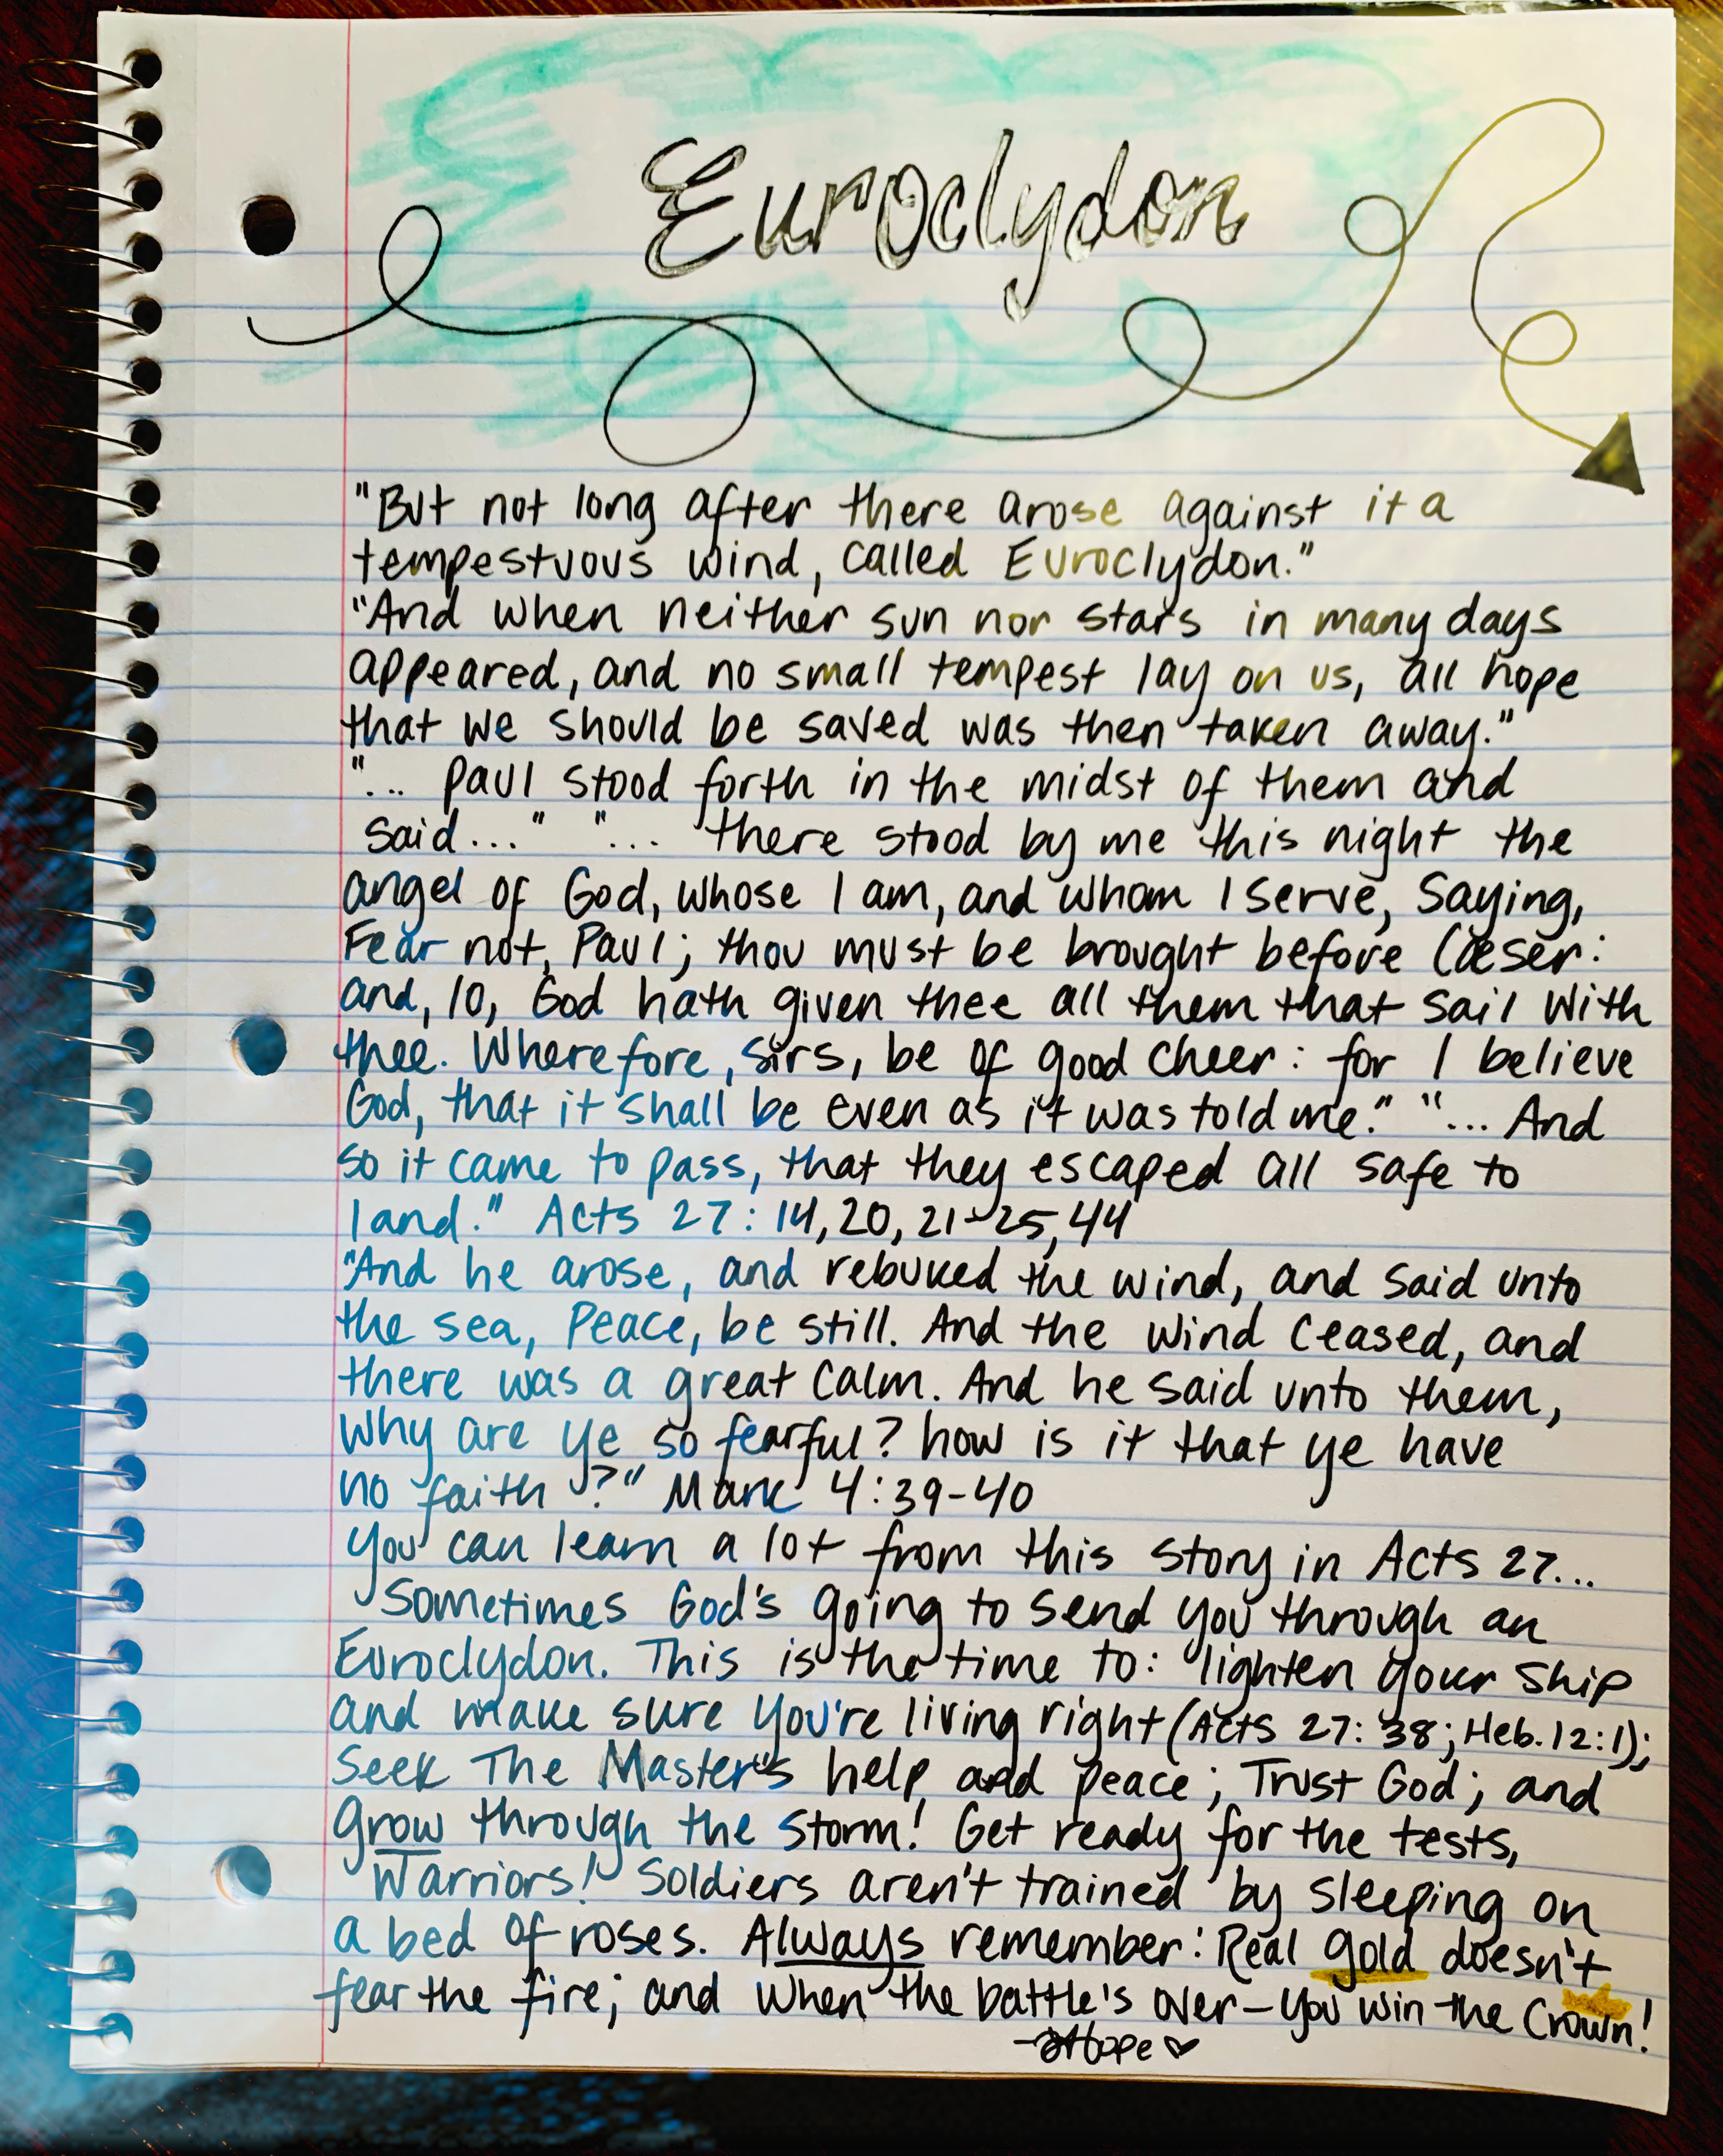 Euroclydon
"But not long after there arose against it a
tempestuous wind, called Euroclydon."
"And when neither sun nor stars in many days
appeared, and no small tempest lay on us, all hope
that we should be saved was then taken away."
"... Paul stood forth in the midst of them and
said..." "... there stood by me this night the
angel of God, whose I am, and whom I serve, Saying,
Fear not, Paul; thou must be brought before Cæser:
and, lo, God hath given thee all them that sail with
thee. Wherefore, sirs, be of good cheer: for I believe
God, that it shall be even as it was told me." "... And
so it came to pass, that they escaped all safe to
land." Acts 27:14,20,21-25,44
"And he arose, and rebuked the wind, and said unto
the sea, Peace, be still. And the wind ceased, and
there was a great calm. And he said unto them,
Why are ye so fearful? how is it that ye have
no faith?" Mark 4:39-40
You can learn a lot from this story in Acts 27...
Sometimes God's going to send you through an
Euroclydon. This is the time to: lighten your ship
and make sure you're living right (Acts 27:38; Heb. 12:1);
Seek The Master's help and peace; Trust God; and
grow through the storm! Get ready for the tests,
Warriors! Soldiers aren't trained by sleeping on
a bed of roses. Always remember: Real gold doesn't
fear the fire; and when the battle's over-you win the Crown!
Hope